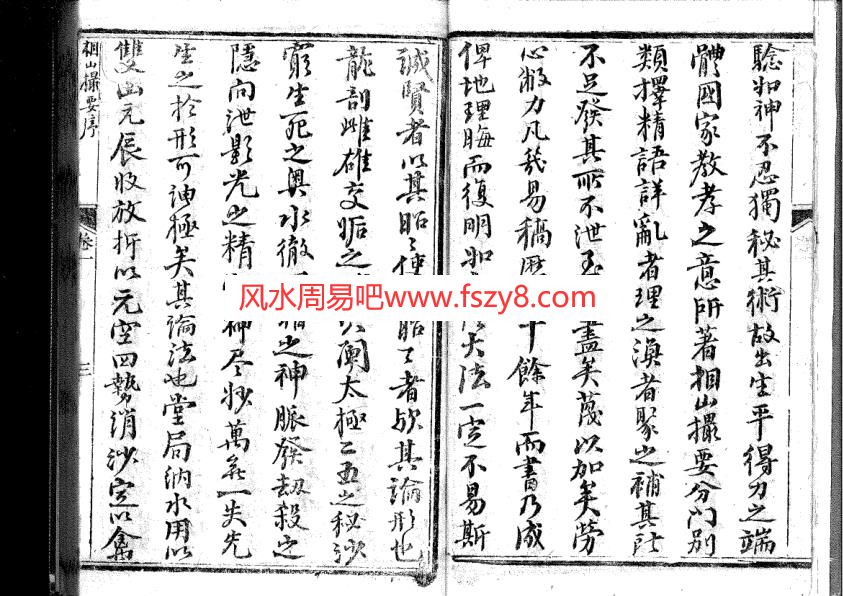 驗如神不忍獨秘其術故出生平得力之端
體國家教孝之意所著相山撮要分門別
類擇精語詳亂者理之渙者聚之補其所
不足發其所不泄玉盡矣蔑以加矣勞
心敝力凡幾易稿歷十餘年而書乃成
俾地理晦而復明如大法一定不易斯
誠賢者以其昭昭使昭昭者歟其論形也
龍剖雌雄交姤之闡太極二五之秘沙
窮生死之奥水徹之神脈發劫殺之
隱向泄影光之精神尽妙萬無一失先
生之於形可神極矣其論法也堂局納水用以
雙山元辰收放折以元空四勢消沙定以禽
相山撮要序
卷一
三
风水周易吧www.fszy8.com